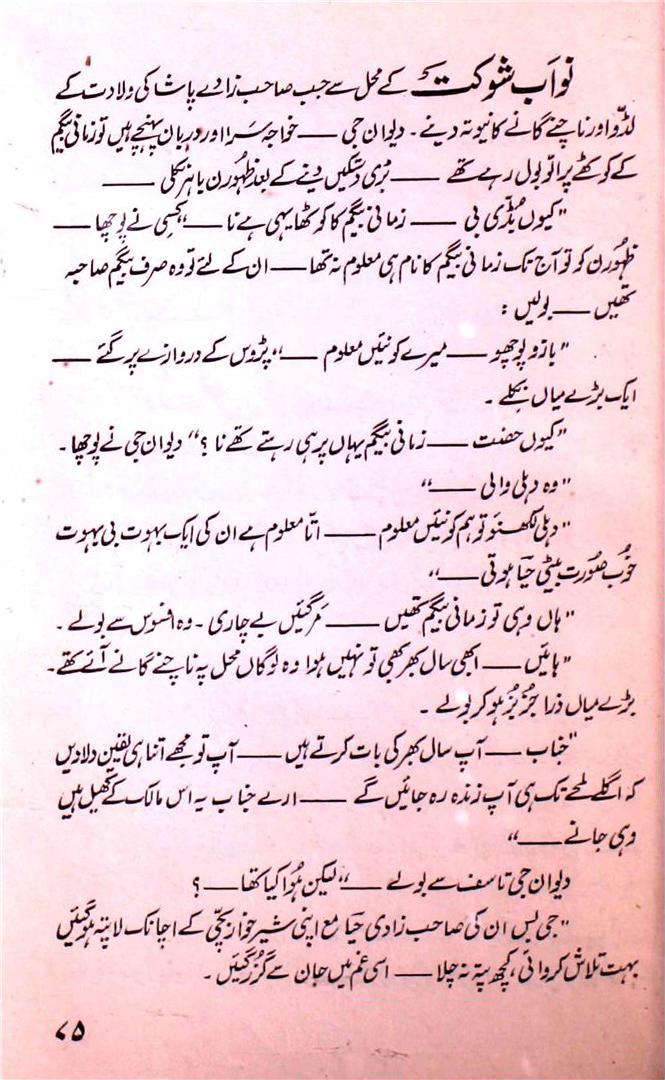 نواب شوکت کے محل سے جب صاحب زادے پاشا کی ولادت کے
لڈو اور ناچنے گانے کا نیوتہ دینے ۔ دیوان جی —— خواجہ سرا اور دربان پہنچے ہیں تو زمانی بیگم
کے کوٹھے پر الّو بول رہے تھے —— بڑی دستکیں دینے کے بعد ظہورن باہر نکلی ——
"کیوں بڈّی بی —— زمانی بیگم کا کوٹھا یہی ہے نا —— "کسی نے پوچھا ——
ظہورن کو تو آج تک زمانی بیگم کا نام ہی معلوم نہ تھا —— ان کے لئے تو وہ صرف بیگم صاحبہ
تھیں —— بولیں :
"بازو پوچھو —— میرے کو نئیں معلوم ——" پڑوس کے دروازے پر گئے ——
ایک بڑے میاں نکلے ۔
"کیوں حضت —— زمانی بیگم یہاں پر ہی رہتے تھے نا ؟" دیوان جی نے پوچھا ۔
"وہ دہلی والی ——"
"دہلی لکھنؤ تو ہم کو نئیں معلوم —— اتّا معلوم ہے ان کی ایک بہوت بی بہوت
خوب صورت بیٹی حیا ہوتی ——"
"ہاں وہی تو زمانی بیگم تھیں —— مر گئیں بے چاری ۔ وہ افسوس سے بولے ۔
"ہائیں —— ابھی سال بھر بھی تو نہیں ہوا وہ لوگاں محل پہ ناچنے گانے آئے تھے ۔
بڑے میاں ذرا جُز بُز ہو کر بولے ۔
"جناب —— آپ سال بھر کی بات کرتے ہیں —— آپ تو مجھے اتنا ہی یقین دلا دیں
کہ اگلے لمحے تک ہی آپ زندہ رہ جائیں گے —— ارے جناب یہ اس مالک کے کھیل ہیں
وہی جانے ——"
دیوان جی تاسف سے بولے ——" لیکن ہُوا کیا تھا —— ؟
"جی بس ان کی صاحب زادی حیا مع اپنی شیر خوار بچّی کے اچانک لاپتہ ہو گئیں
بہت تلاش کروائی ، کچھ پتہ نہ چلا —— اسی غم میں جان سے گزر گئیں ۔
۷۵